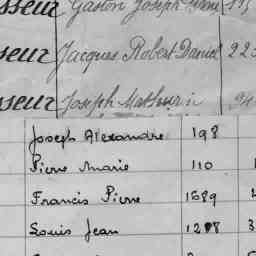 sseur Gaston Joseph Pierre 113
sseur Jacques Robert Daniel 223
sseur Joseph Mathurin 94
Joseph Alexandre 198
Pierre Marie 110
Francis Pierre 1689
Louis Jean 1278 3